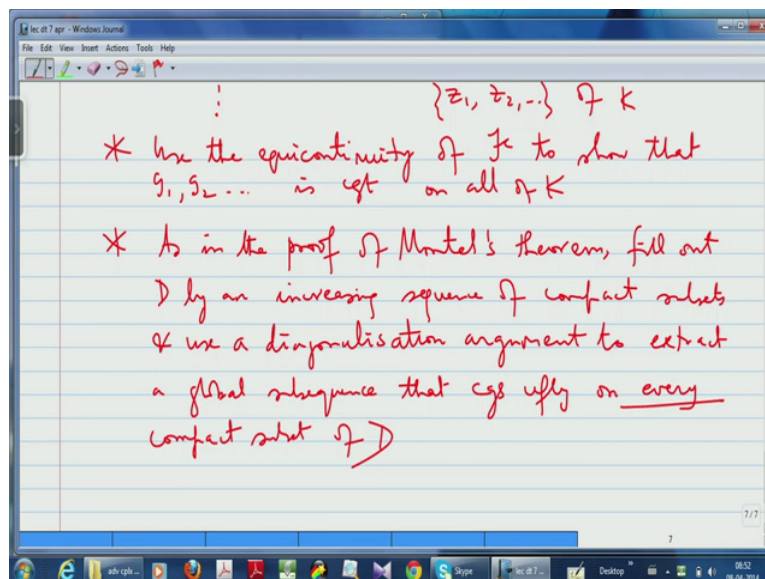 lec dt 7 apr - Windows Journal
File Edit View Insert Actions Tools Help
⋮ {z₁, z₂, ..} of K
* Use the equicontinuity of ℱ to show that
g₁, g₂ ... is cgt on all of K
* As in the proof of Montel's theorem, fill out
D by an increasing sequence of compact subsets
& use a diagonalisation argument to extract
a global subsequence that cgs ufly on every
compact subset of D
7/7
7
adv cpls...
Skype
lec dt 7 ...
Desktop
08:52
08-04-2014